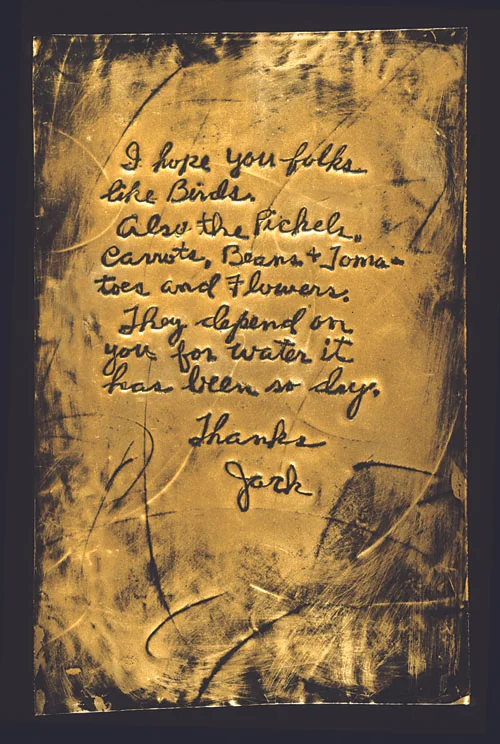 I hope you folks
like Birds.
Also the Pickels,
Carrots, Beans + Toma-
toes and Flowers.
They depend on
you for water it
has been so dry.
Thanks
Jack